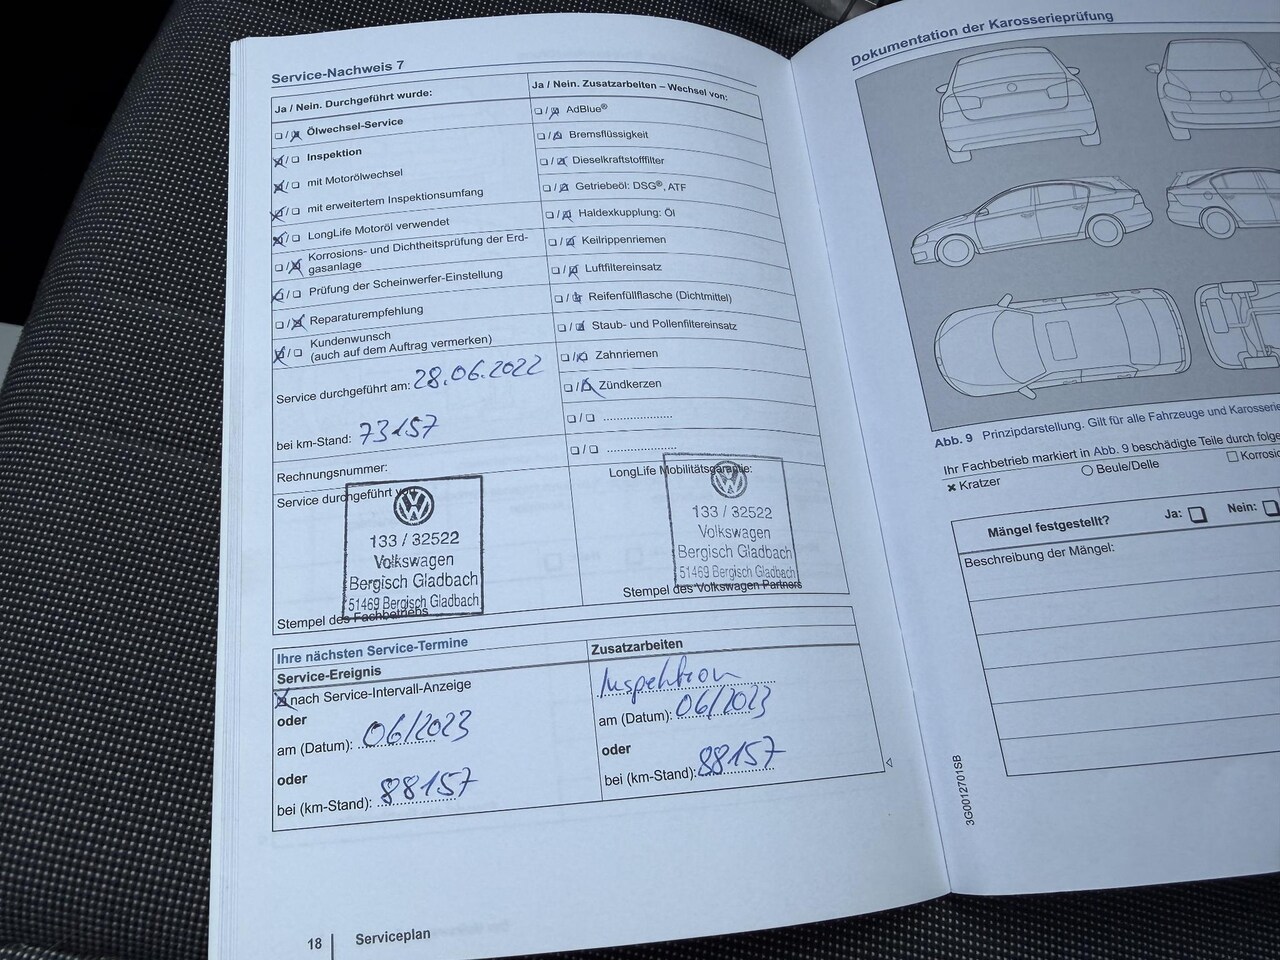 Service-Nachweis 7
Ja / Nein. Durchgeführt wurde:
Ölwechsel-Service
Inspektion
mit Motorölwechsel
mit erweitertem Inspektionsumfang
LongLife Motoröl verwendet
Korrosions- und Dichtheitsprüfung der Erd-
gasanlage
Prüfung der Scheinwerfer-Einstellung
Reparaturempfehlung
Kundenwunsch
(auch auf dem Auftrag vermerken)
Service durchgeführt am: 28.06.2022
bei km-Stand: 73157
Rechnungsnummer:
Service durchgeführt von:
133 / 32522
Volkswagen
Bergisch Gladbach
51469 Bergisch Gladbach
Stempel des Fachbetriebs
Ja / Nein. Zusatzarbeiten – Wechsel von:
AdBlue®
Bremsflüssigkeit
Dieselkraftstofffilter
Getriebeöl: DSG®, ATF
Haldexkupplung: Öl
Keilrippenriemen
Luftfiltereinsatz
Reifenfüllflasche (Dichtmittel)
Staub- und Pollenfiltereinsatz
Zahnriemen
Zündkerzen
LongLife Mobilitätsgarantie:
133 / 32522
Volkswagen
Bergisch Gladbach
51469 Bergisch Gladbach
Stempel des Volkswagen Partners
Ihre nächsten Service-Termine
Service-Ereignis
nach Service-Intervall-Anzeige
oder
am (Datum): 06/2023
oder
bei (km-Stand): 88157
Zusatzarbeiten
Inspektion
am (Datum): 06/2023
oder
bei (km-Stand): 88157
18 Serviceplan
Dokumentation der Karosserieprüfung
Abb. 9 Prinzipdarstellung. Gilt für alle Fahrzeuge und
Ihr Fachbetrieb markiert in Abb. 9 beschädigte Teile durch
Kratzer
Beule/Delle
Mängel festgestellt? Ja: Nein:
Beschreibung der Mängel:
3G0012701SB